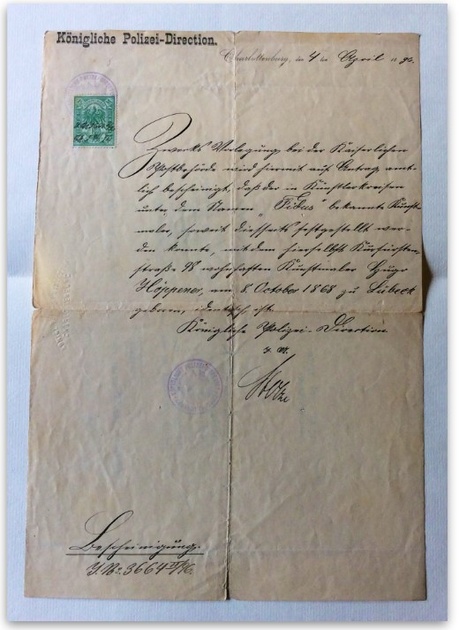 Königliche Polizei-Direction.
Charlottenburg, den 4 ten April 18
Zwecks Vorlegung bei der Kaiserlichen
Postbehörde wird hiermit auf Antrag amt-
lich bescheinigt, daß der in Künstlerkreisen
unter dem Namen „Fidus" bekannte Kunst-
maler, soweit diesseits festgestellt wer-
den konnte, mit dem hierselbst Kurfürsten-
straße 98 wohnhaften Kunstmaler Hugo
Höppener, am 8. October 1868 zu Lübeck
geboren, identisch ist.
Königliche Polizei-Direction
Bescheinigung.
J. No. 3664